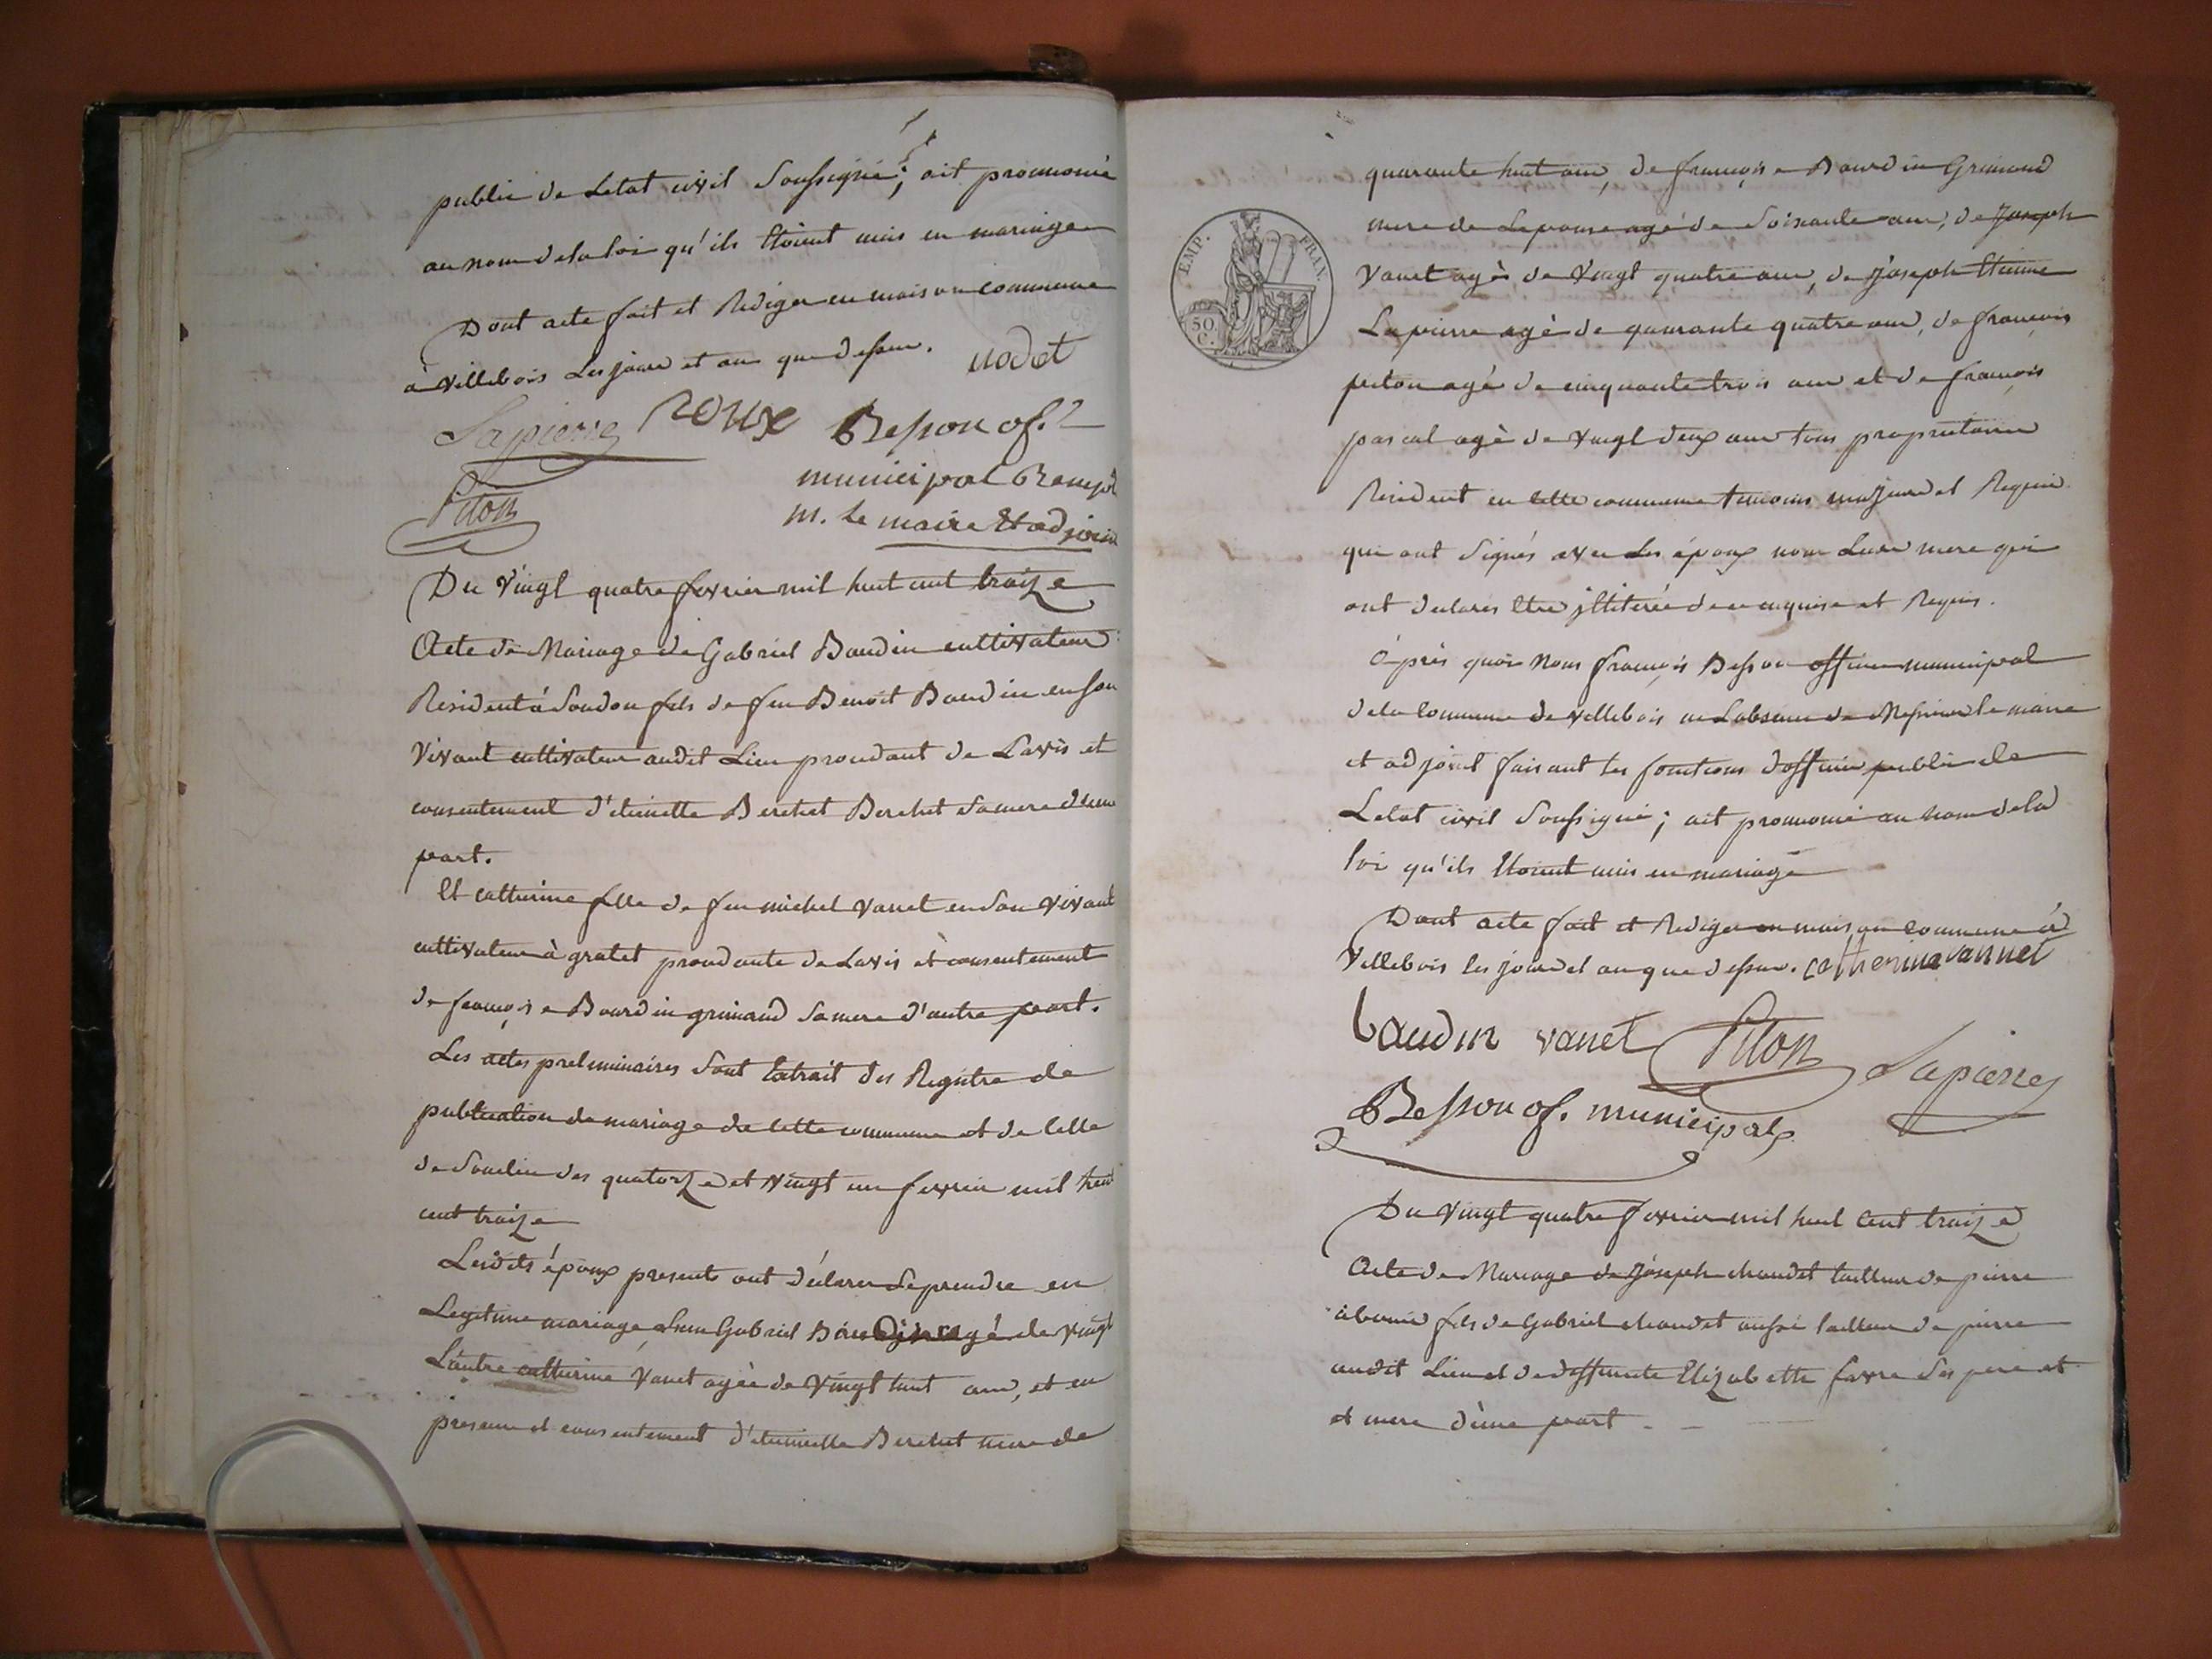 public de Letat civil Soussigné; ait prononcé
au nom de la loi qu'ils Etoient unis en mariage
Dont acte fait et Rediger en maison commune
à Villebois Les jour et an que dessus. nodet
Lapierre ROUX Besson of.
Piton
municipal Rempt
m. le maire Et adjoin
Du Vingt quatre fevrier mil huit cent traize
Acte de Mariage de Gabriel Baudin cultivateur
Resident à Soudon fils de feu Benoit Baudin en son
Vivant cultivateur audit Lieu procedant de Lavis et
consentement d'etiennette Berchet Berchet sa mere d'une
part.
Et catherine fille de feu michel Vanet en son vivant
cultivateur à gratet procedante de Lavis et consentement
de françoise Bourdin grimand sa mere d'autre part.
Les actes preliminaires sont Extrait des Registre de
publication de mariage de cette commune et de celle
de des quatorze et Vingt un fevrier mil huit
cent traize
Lesdits époux present ont déclarer se prendre en
Legitime mariage, Lun Gabriel Baudin agé de vingt
L'autre catherine Vanet agée de Vingt huit ans, et en
presence et consentement d'etiennette Berchet mere de
EMP. FRAN.
50 C.
quarante huit ans, de françoise Bourdin Grimand
mere de Lepouse agé de Soixante ans, de Joseph
Vanet agé de Vingt quatre ans, de Joseph Etienne
Lapierre agé de quarante quatre ans, de françois
piton agé de cinquante trois ans et de françois
pascal agé de Vingt deux ans tous proprietaires
Resident en cette commune temoins majeurs et Requis
qui ont signés avec Les époux non Leur mere qui
ont declarés Etre illiterée de ce enquise et Requis.
Après quoi Nous françois Besson officier municipal
de la Commune de Villebois en Labsence de Messieurs le maire
et adjoint faisant les fonctions d'officier public de
Letat civil Soussigné; ait prononcé au nom de la
loi qu'ils Etoient unis en mariage
Dont acte fait et Rediger en maison commune à
Villebois les jour et an que dessus. catherine vannet
baudin vanet Piton Lapierre
Besson of. municipal
Du Vingt quatre fevrier mil huit Cent traize
Acte de Mariage de Joseph chaudet tailleur de pierre
fils de Gabriel chaudet aussi tailleur de pierre
audit Lieu et de deffuncte Elizabette favre Ses pere et
et mere d'une part